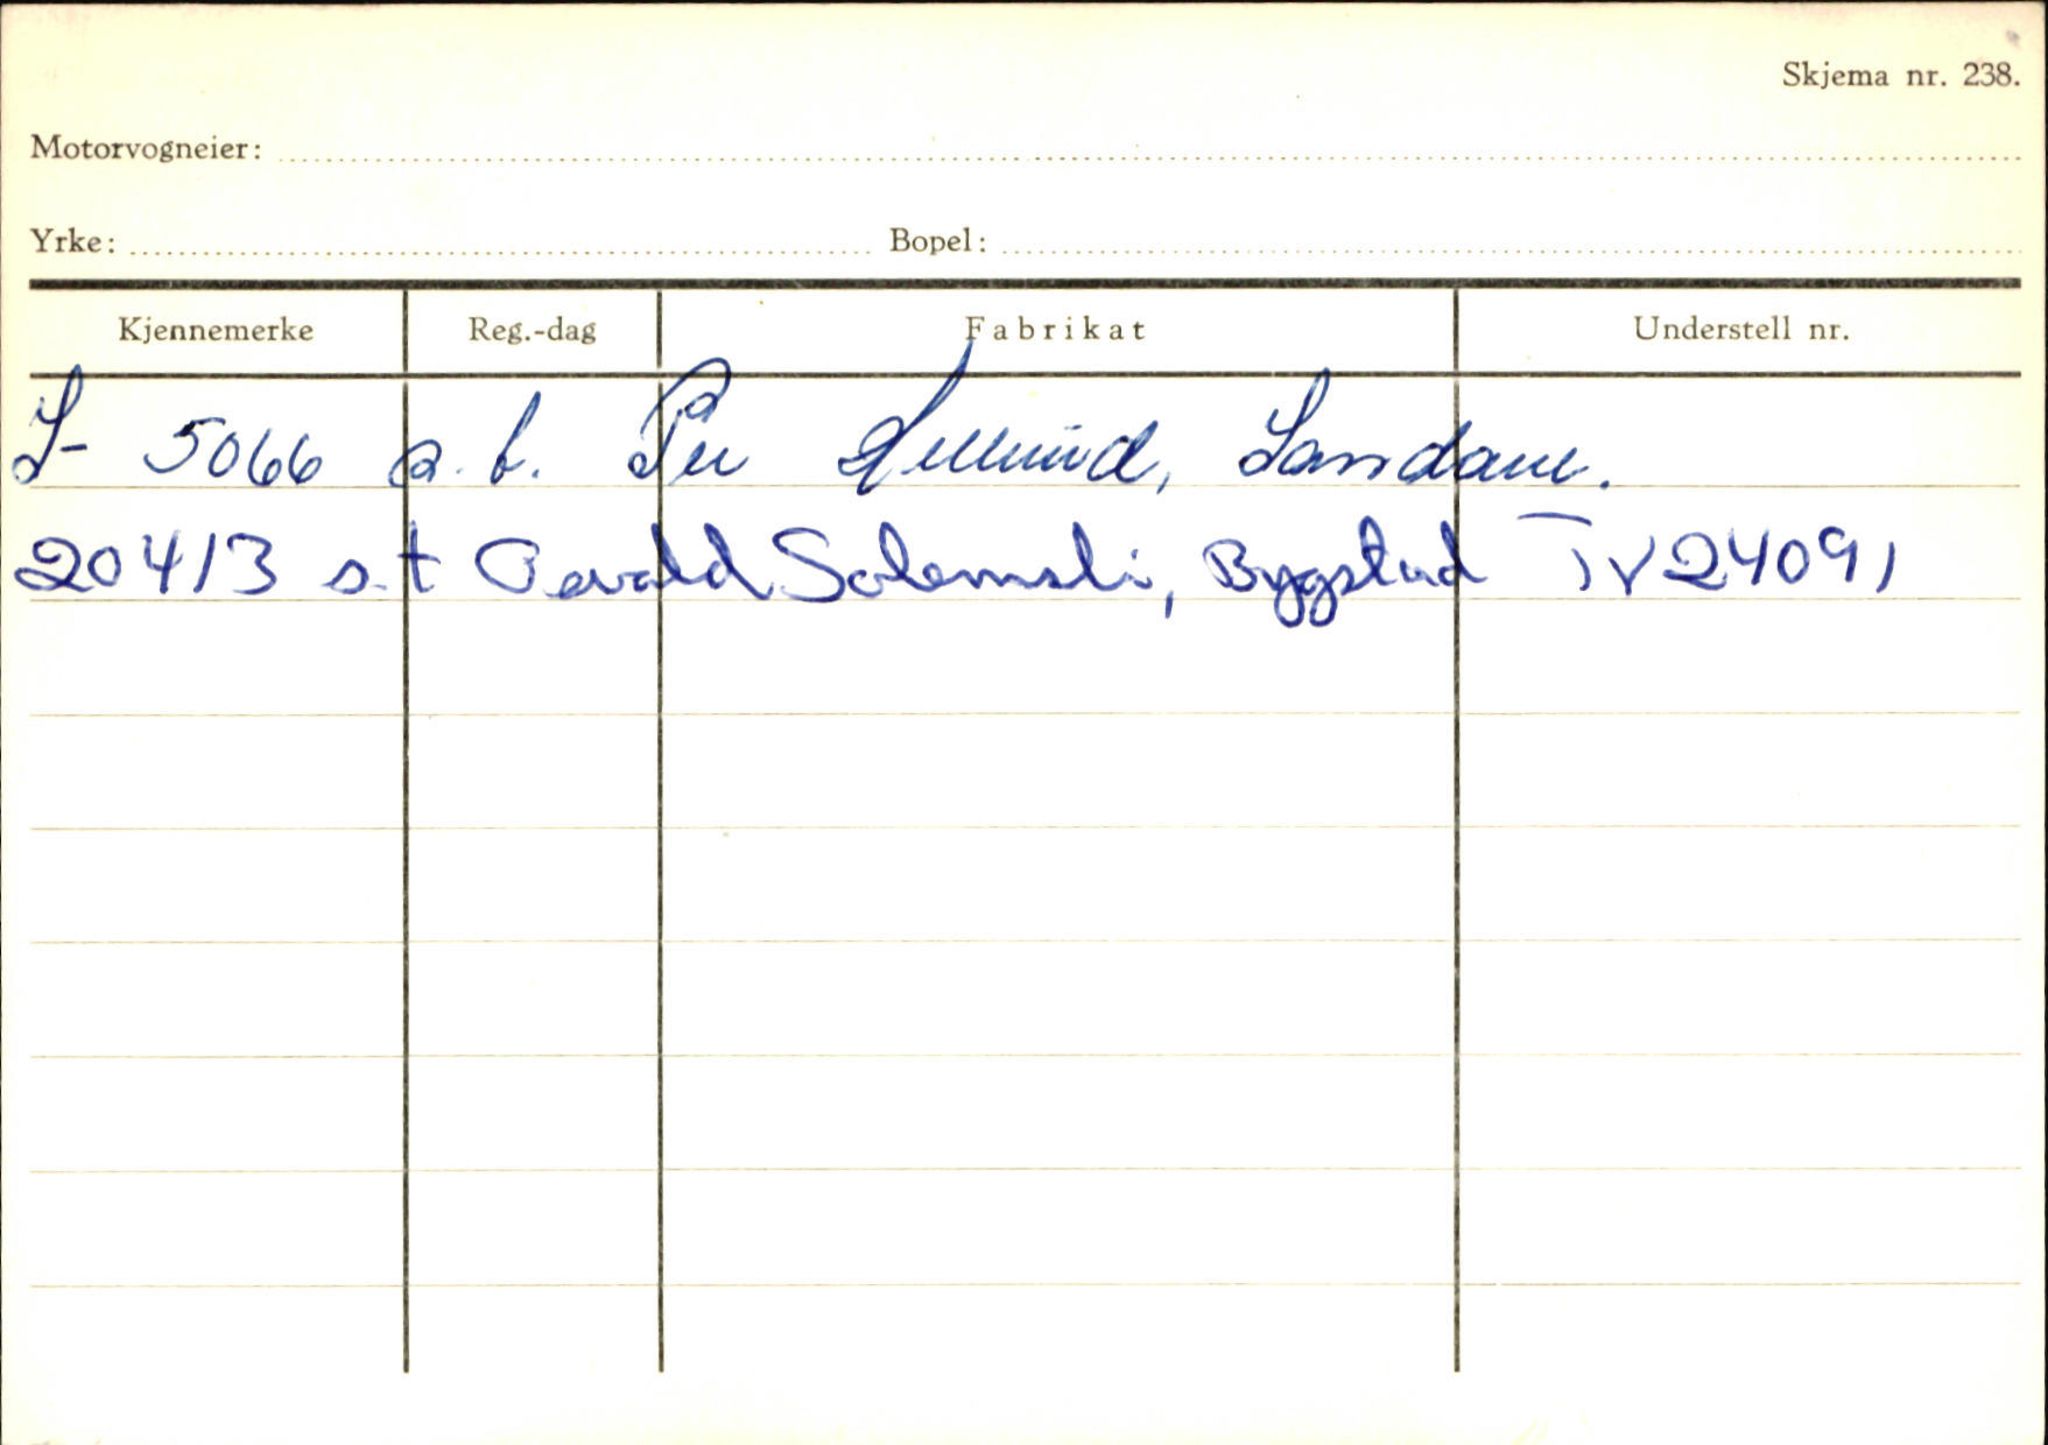 Skjema nr. 238.
Motorvogneier:
Yrke: Bopel:
Kjennemerke Reg.-dag Fabrikat Understell nr.
S- 5066 a.b. Per Hellund, Sandane.
20413 s.t Osvald Solemsli, Bygstad TV24091